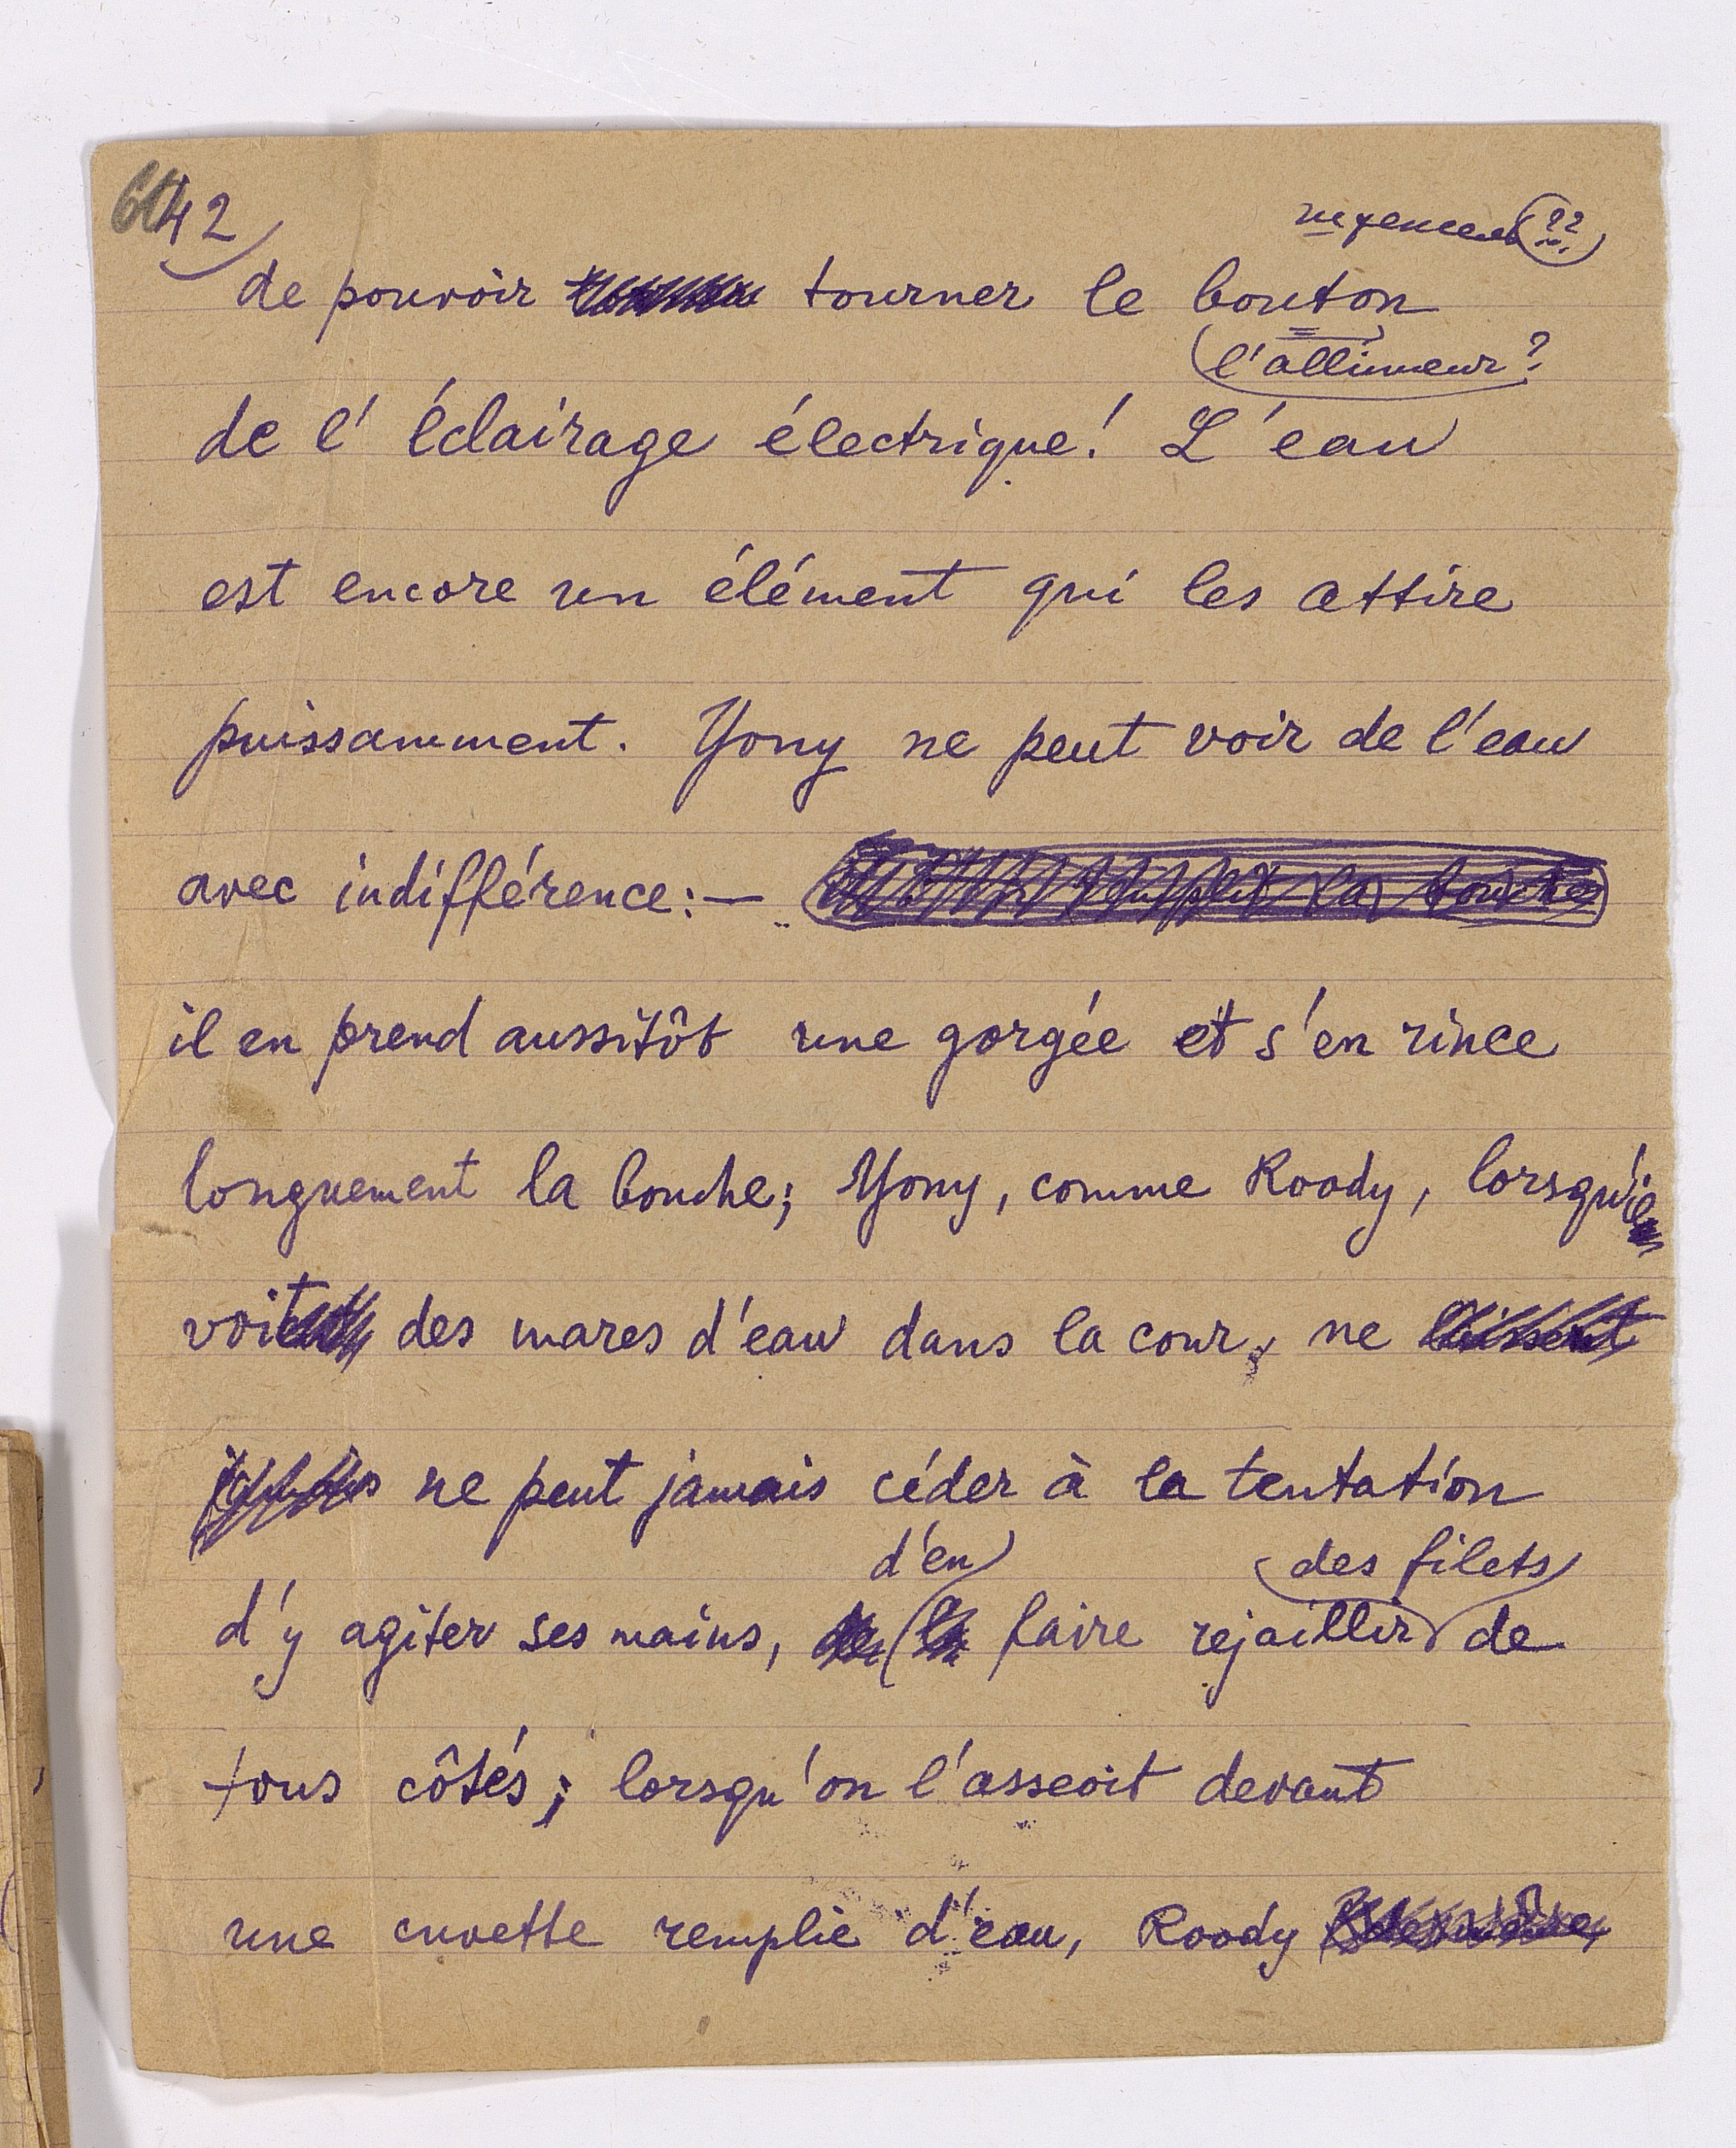 42
de pouvoir tourner le bouton
l'allumeur?
de l'éclairage électrique! L'eau
est encore un élément qui les attire
puissamment. Yony ne peut voir de l'eau
avec indifférence:—
il en prend aussitôt une gorgée et s'en rince
longuement la bouche; Yony, comme Roody, lorsqu'il
voit des mares d'eau dans la cour, ne
ne peut jamais céder à la tentation
d'en des filets
d'y agiter ses mains, faire rejaillir de
tous côtés; lorsqu'on l'asseoit devant
une cuvette remplie d'eau, Roody